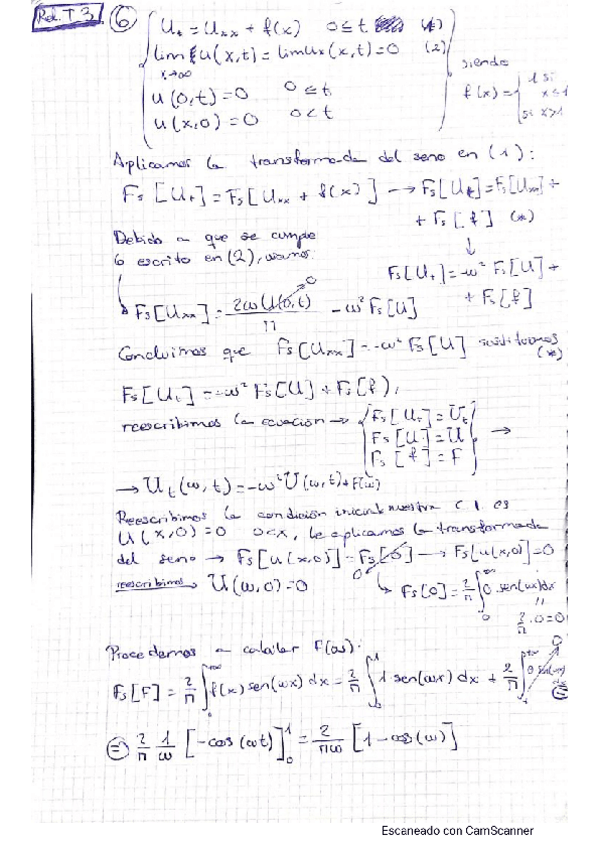 Rel. T.3 ⑥ { U_t = U_xx + f(x) 0 ≤ t (1)
lim u(x,t) = lim u_x(x,t) = 0 (2)
x→∞
u(0,t) = 0 0 ≤ t
u(x,0) = 0 0 < t
siendo
f(x) = { 1 si x ≤ 1
si x>1
Aplicamos la transformada del seno en (1):
F_s[U_t] = F_s[U_xx + f(x)] → F_s[U_t] = F_s[U_xx] +
+ F_s[f] (*)
↓
Debido a que se cumple
lo escrito en (2), usamos:
F_s[U_t] = -ω² F_s[U] +
+ F_s[f]
F_s[U_xx] = 2ω U(0,t) / π - ω² F_s[U]
0
Concluimos que F_s[U_xx] = -ω² F_s[U] sustituimos
(*)
F_s[U_t] = -ω² F_s[U] + F_s[f],
reescribimos la ecuación → { F_s[U_t] = U_t
F_s[U] = U
F_s[f] = F } →
→ U_t(ω,t) = -ω² U(ω,t) + F(ω)
Reescribimos la condición inicial nuestra C.I. es
U(x,0) = 0 0<x, le aplicamos la transformada
del seno → F_s[u(x,0)] = F_s[0] → F_s[u(x,0)] = 0
0
reescribimos U(ω,0) = 0
F_s[0] = 2/π ∫_0^∞ 0 sen(ωx)dx
=
2/π · 0 = 0
Procedemos a calcular F(ω):
F_s[F] = 2/π ∫_0^∞ f(x) sen(ωx) dx = 2/π ∫_0^1 1 sen(ωx) dx + 2/π ∫_1^∞ 0 sen(ωx) dx 0 =
⇒ 2/π 1/ω [-cos(ωt)]_0^1 = 2/πω [1 - cos(ω)]
Escaneado con CamScanner